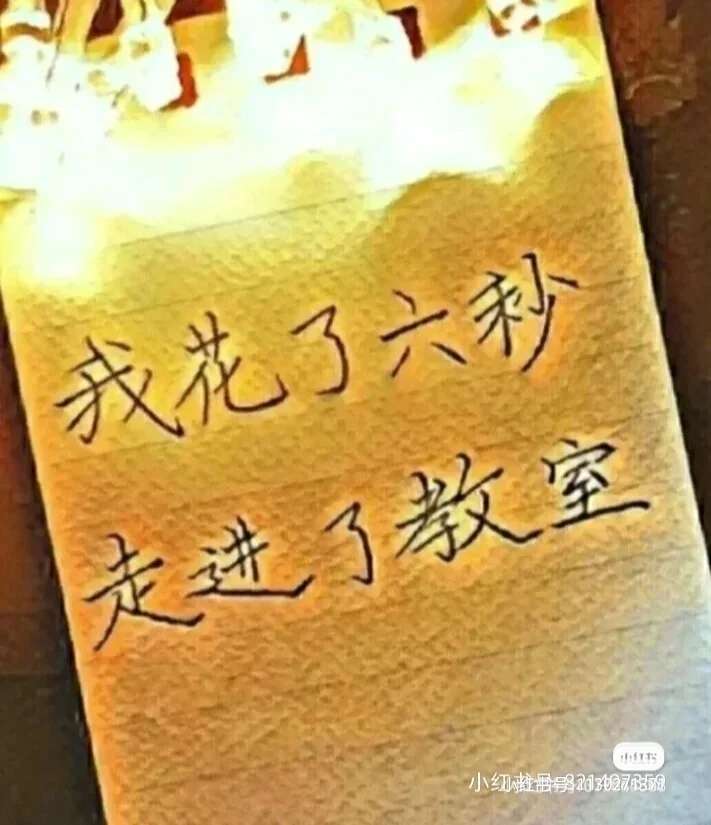 我花了六秒
走进了教室
小红书
小红书号: